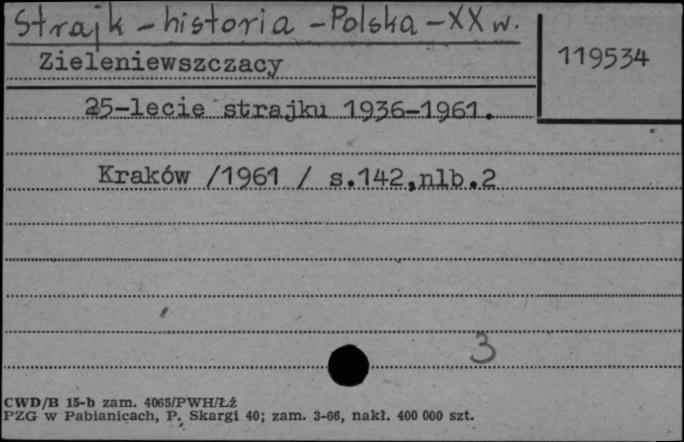 Strajk - historia - Polska - XX w.
Zieleniewszczacy
119534
25-lecie strajku 1936-1961.
Kraków /1961 / s.142,nlb.2
3
CWD/B 15-b zam. 4065/PWH/Łź
PZG w Pabianicach, P. Skargi 40; zam. 3-66, nakł. 400 000 szt.